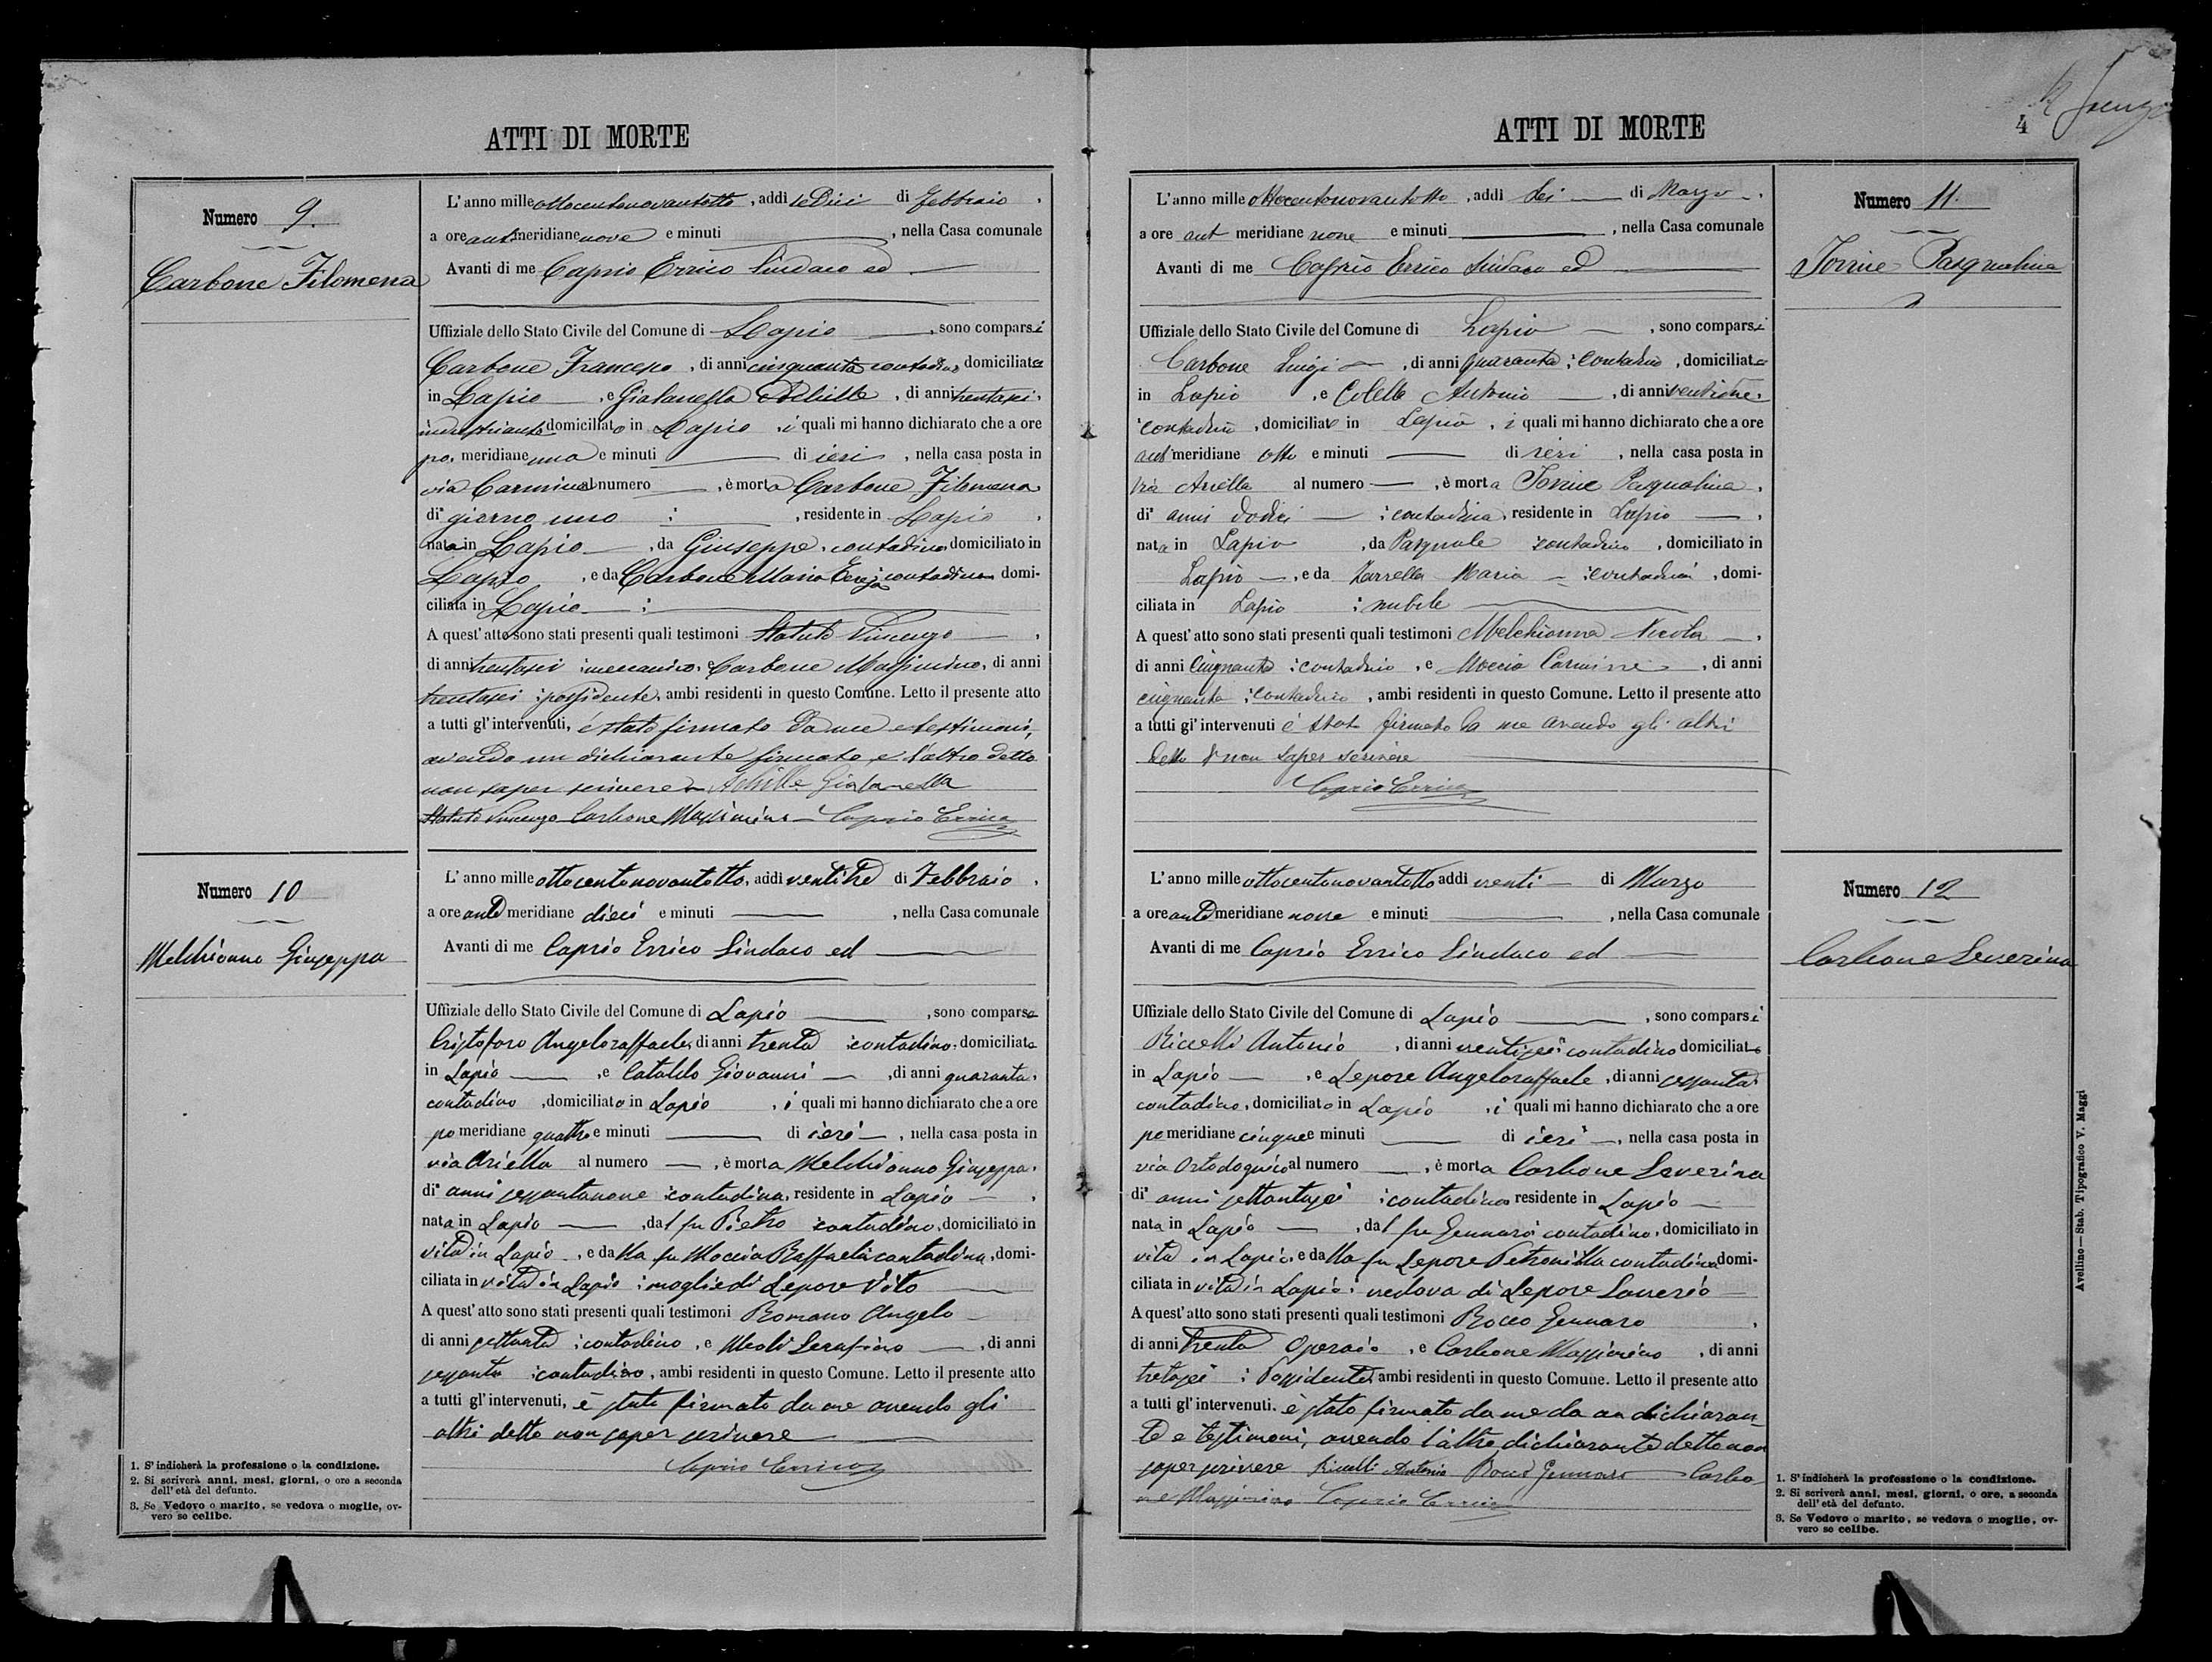 ATTI DI MORTE
Numero 9.
Carbone Filomena
L'anno mille ottocentonovantotto, addì sedici di Febbraio,
a ore ant meridiane nove e minuti , nella Casa comunale
Avanti di me Caprio Errico Sindaco ed
Uffiziale dello Stato Civile del Comune di Lapio , sono comparsi
Carbone Francesco, di anni cinquanta contadino, domiciliato
in Lapio , e Gialanella Achille, di anni trentasei,
industriante domiciliato in Lapio, i quali mi hanno dichiarato che a ore
po. meridiane una e minuti di ieri, nella casa posta in
via Carmine al numero , è morta Carbone Filomena
di giorno uno ; , residente in Lapio,
nata in Lapio , da Giuseppe, contadino domiciliato in
Lapio , e da Carbone Maria contadina domi-
ciliata in Lapio ;
A quest'atto sono stati presenti quali testimoni Statuto Vincenzo ,
di anni trentasei ; meccanico, e Carbone Massimino, di anni
trentasei ; possidente, ambi residenti in questo Comune. Letto il presente atto
a tutti gl'intervenuti, è stato firmato da me e testimoni,
avendo un dichiarante firmato e l'altro detto
non saper scrivere Achille Gialanella
Statuto Vincenzo Carbone Massimino Caprio Errico
Numero 10
Melchionna Giuseppa
L'anno mille ottocentonovantotto, addì ventitre di Febbraio,
a ore ante meridiane dieci e minuti , nella Casa comunale
Avanti di me Caprio Errico Sindaco ed
Uffiziale dello Stato Civile del Comune di Lapio , sono comparsi
Cristoforo Angeloraffaele, di anni trenta contadino, domiciliato
in Lapio , e Cataldo Giovanni , di anni quaranta,
contadino, domiciliato in Lapio , i quali mi hanno dichiarato che a ore
po meridiane quattro e minuti di ieri , nella casa posta in
via Ariella al numero , è morta Melchionna Giuseppa,
di anni sessantanove contadina, residente in Lapio ,
nata in Lapio , dal fu Pietro contadino, domiciliato in
vita in Lapio, e dalla fu Moccia Raffaela contadina, domi-
ciliata in vita in Lapio ; moglie di Lepore Vito
A quest'atto sono stati presenti quali testimoni Romano Angelo
di anni settanta ; contadino, e Meoli Serafino , di anni
sessanta ; contadino, ambi residenti in questo Comune. Letto il presente atto
a tutti gl'intervenuti, è stato firmato da me avendo gli
altri detto non saper scrivere
Caprio Errico
1. S'indicherà la professione o la condizione.
2. Si scriverà anni, mesi, giorni, o ore a seconda
dell'età del defunto.
3. Se Vedovo o marito, se vedova o moglie, ov-
vero se celibe.
ATTI DI MORTE
4
Numero 11.
Pasqualina
L'anno mille ottocentonovantotto, addì sei di Marzo,
a ore ant meridiane nove e minuti , nella Casa comunale
Avanti di me Caprio Errico Sindaco ed
Uffiziale dello Stato Civile del Comune di Lapio , sono comparsi
Carbone Luigi , di anni quaranta ; contadino, domiciliato
in Lapio , e Colella Antonio , di anni
contadino, domiciliato in Lapio, i quali mi hanno dichiarato che a ore
ant meridiane otto e minuti di ieri , nella casa posta in
via Ariella al numero , è morta Pasqualina,
di anni dodici ; contadina, residente in Lapio ,
nata in Lapio , da Pasquale contadino, domiciliato in
Lapio , e da Zarrella Maria ; contadina, domi-
ciliata in Lapio ; nubile
A quest'atto sono stati presenti quali testimoni Melchionna Nicola ,
di anni cinquanta ; contadino, e Moccia Carmine , di anni
cinquanta ; contadino, ambi residenti in questo Comune. Letto il presente atto
a tutti gl'intervenuti è stato firmato da me avendo gli altri
detto di non saper scrivere
Caprio Errico
Numero 12
Carbone Saverina
L'anno mille ottocentonovantotto addì venti di Marzo
a ore ante meridiane nove e minuti , nella Casa comunale
Avanti di me Caprio Errico Sindaco ed
Uffiziale dello Stato Civile del Comune di Lapio , sono comparsi
Riccelli Antonio , di anni ventisei contadino domiciliato
in Lapio , e Lepore Angeloraffaele, di anni sessanta
contadino, domiciliato in Lapio , i quali mi hanno dichiarato che a ore
po meridiane cinque e minuti di ieri , nella casa posta in
via al numero , è morta Carbone Saverina
di anni settantasei ; contadina residente in Lapio
nata in Lapio , dal fu Gennaro contadino, domiciliato in
vita in Lapio, e dalla fu Lepore Petronilla contadina domi-
ciliata in vita in Lapio ; vedova di Lepore Saverio
A quest'atto sono stati presenti quali testimoni Rocco Gennaro ,
di anni trenta Operaio, e Carbone Massimino , di anni
tretasei ; Possidente, ambi residenti in questo Comune. Letto il presente atto
a tutti gl'intervenuti, è stato firmato da me da un dichiaran-
te e testimoni, avendo l'altro dichiarante detto non
saper scrivere Riccelli Antonio Rocco Gennaro Carbo-
ne Massimino Caprio Errico
1. S'indicherà la professione o la condizione.
2. Si scriverà anni, mesi, giorni, o ore, a seconda
dell'età del defunto.
3. Se Vedovo o marito, se vedova o moglie, ov-
vero se celibe.
Avellino—Stab. Tipografico V. Maggi